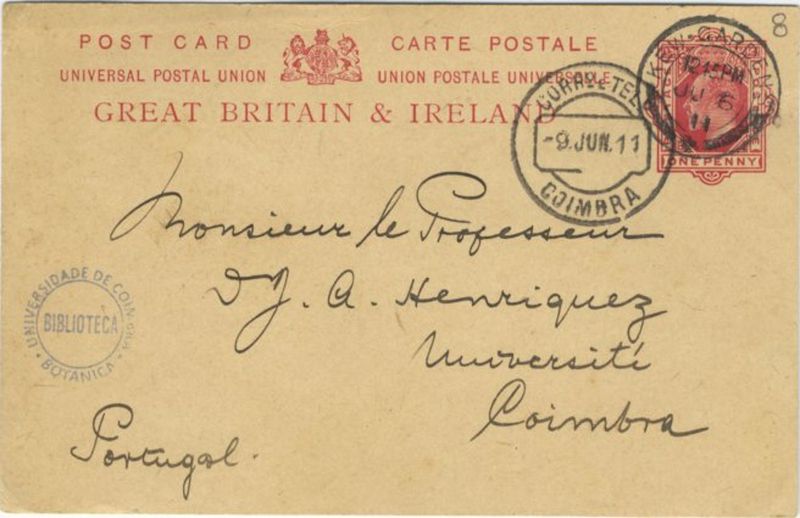 8
POST CARD CARTE POSTALE
UNIVERSAL POSTAL UNION UNION POSTALE UNIVERSELLE
GREAT BRITAIN & IRELAND
KEW-GARDENS
12.15PM
JU 6
11
ONE PENNY
CORREIO E TELE
-9.JUN.11
COIMBRA
Monsieur le Professeur
Dr J. A. Henriquez
Université
Coimbra
Portugal.
UNIVERSIDADE DE COIMBRA
BIBLIOTECA
BOTANICA